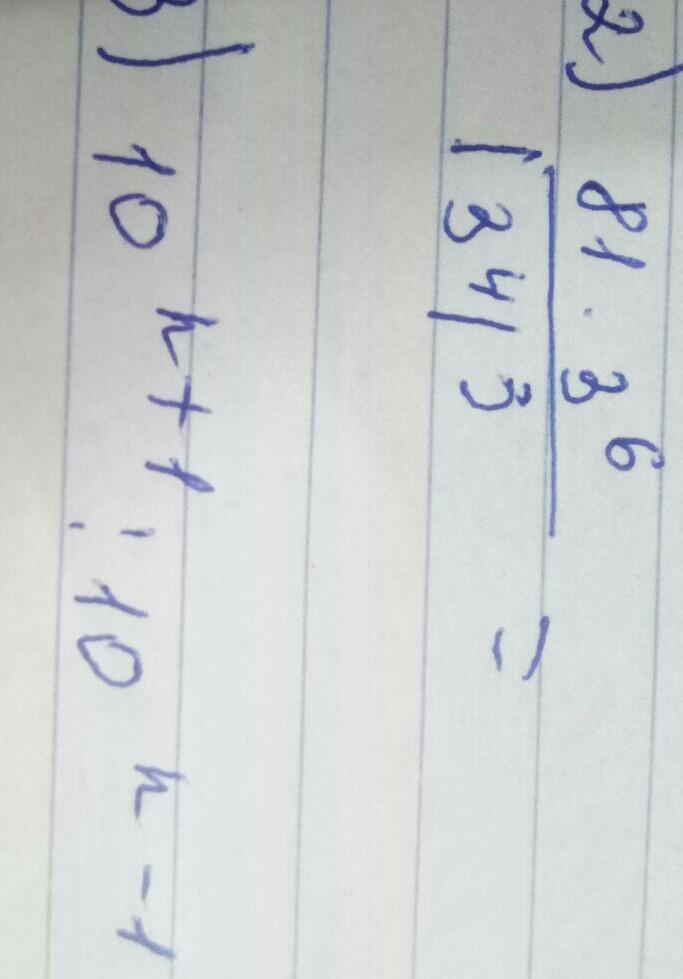 2) 81 · 3⁶
(3⁴)³ =
3) 10ⁿ⁺¹ : 10ⁿ⁻¹